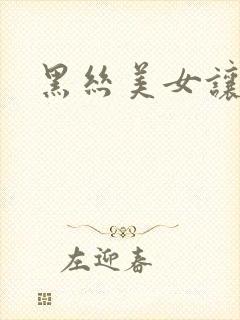 黑絲美女讓
左迎春